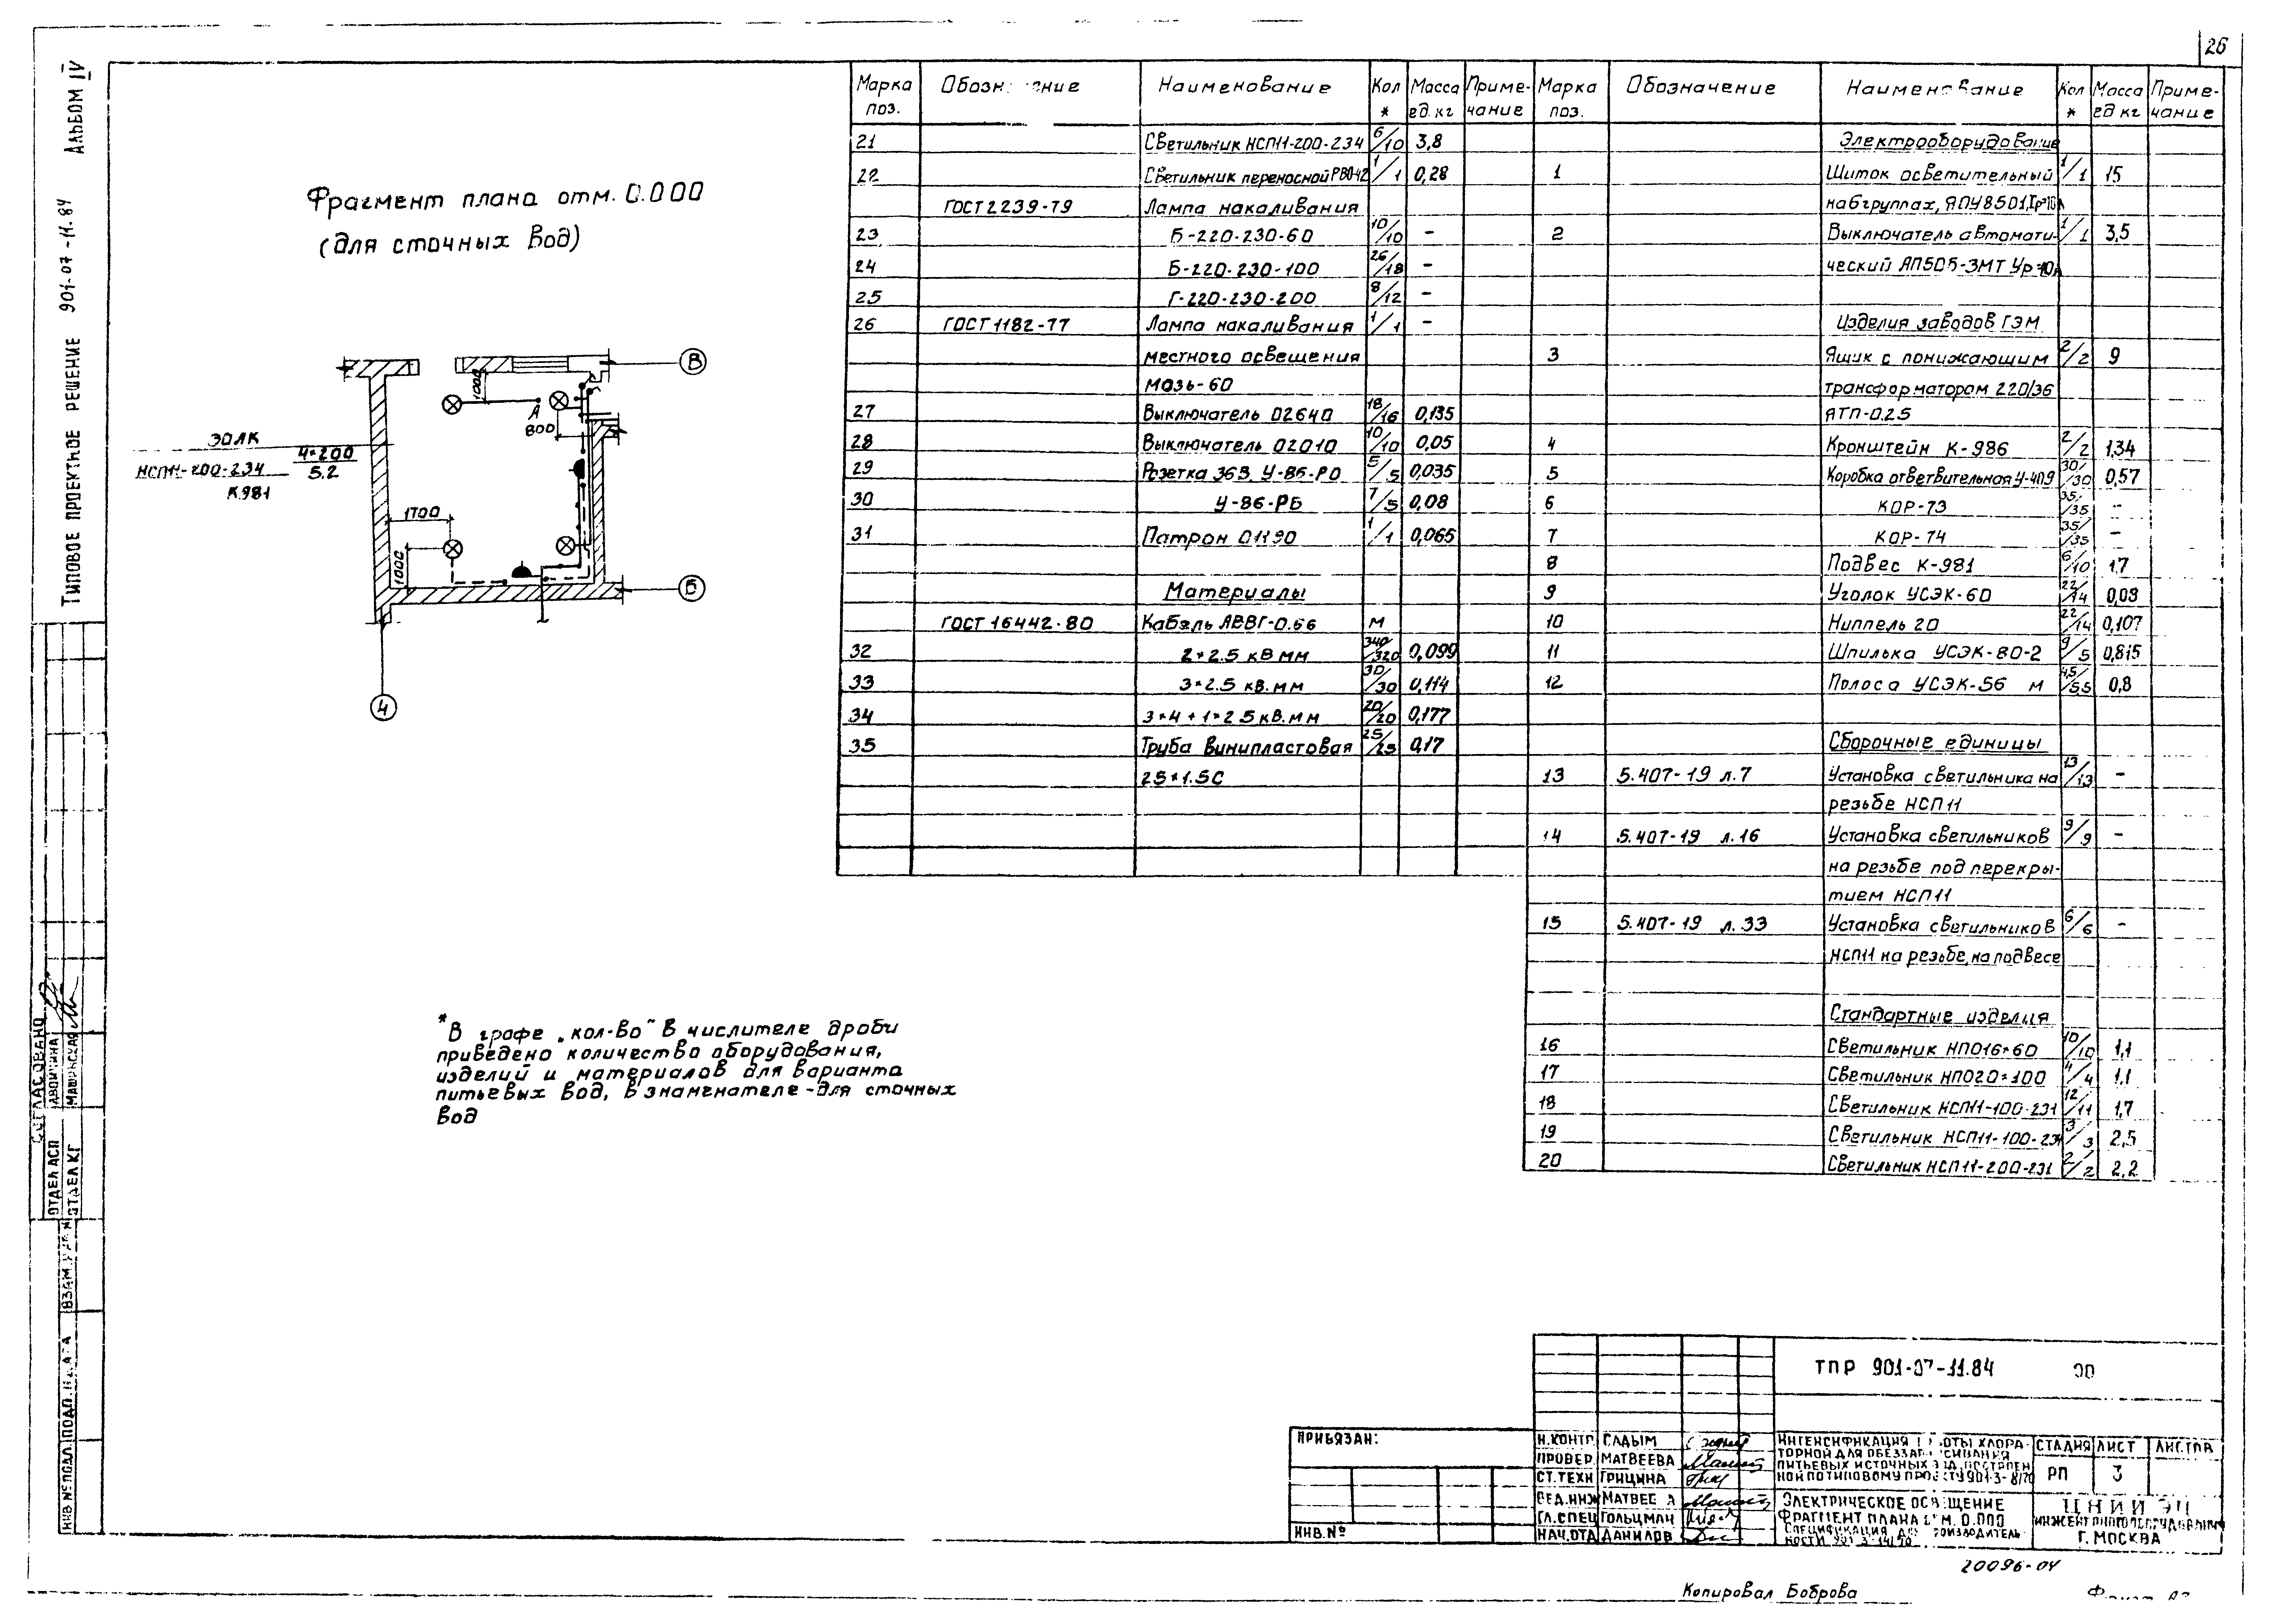 26
Альбом IV
Типовое проектное решение 901-07-11.84
Фрагмент плана отм. 0.000
(для сточных вод)
В
1000
А
800
ЗОЛК
НСП11-200-234 4×200
5.2
К981
1700
1000
Б
4
* В графе „кол-во" в числителе дроби
приведено количество оборудования,
изделий и материалов для варианта
питьевых вод, в знаменателе - для сточных
вод
Марка поз. Наименование Кол * Масса ед. кг Примечание
21 Светильник НСП11-200-234 6/10 3,8
22 Светильник переносной РВО-42 1/1 0,28
ГОСТ 2239-79 Лампа накаливания
23 Б-220-230-60 10/10 -
24 Б-220-230-100 26/18 -
25 Г-220-230-200 8/12 -
26 ГОСТ 1182-77 Лампа накаливания 1/1 -
местного освещения
мозь-60
27 Выключатель 02640 18/16 0,135
28 Выключатель 02010 10/10 0,05
29 Розетка 36В, У-86-РО 5/5 0,035
30 У-86-РБ 7/5 0,08
31 Патрон 01190 1/1 0,065
Материалы
ГОСТ 16442-80 Кабель АВВГ-0.66 м
32 2×2.5 кв мм 340/320 0,099
33 3×2.5 кв.мм 30/30 0,114
34 3×4+1×2.5 кв.мм 20/20 0,177
35 Труба винипластовая 25/25 0,17
25×1.5С
Марка поз. Обозначение Наименование Кол * Масса ед кг Примечание
Электрооборудование
1 Щиток осветительный 1/1 15
на 6 групп ах, ЯОУ8501,
2 Выключатель автомати- 1/1 3,5
ческий АП50Б-3МТ
Изделия заводов ГЭМ
3 Ящик с понижающим 2/2 9
трансформатором 220/36
ЯТП-0.25
4 Кронштейн К-986 2/2 1,34
5 Коробка ответвительная У-409 30/30 0,57
6 КОР-73 35/35 -
7 КОР-74 35/35 -
8 Подвес К-981 6/10 1,7
9 Уголок УСЭК-60 22/14 0,03
10 Ниппель 20 22/14 0,107
11 Шпилька УСЭК-80-2 9/5 0,815
12 Полоса УСЭК-56 м 45/55 0,8
Сборочные единицы
13 5.407-19 л.7 Установка светильника на 13/13 -
резьбе НСП11
14 5.407-19 л.16 Установка светильников 9/9 -
на резьбе под перекры-
тием НСП11
15 5.407-19 л.33 Установка светильников 6/6 -
НСП11 на резьбе, на подвесе
Стандартные изделия
16 Светильник НПО16×60 10/10 1,1
17 Светильник НПО20×100 4/4 1,1
18 Светильник НСП11-100-231 12/11 1,7
19 Светильник НСП11-100-234 3/3 2,5
20 Светильник НСП11-200-231 2/2 2,2
Согласовано
Отдел АСП
Отдел КГ
Инв № подл.
Привязан:
Инв. №
ТПР 901-07-11.84 ЭО
Н.контр Гладым
Провер. Матвеева
Ст.техн Грицина
Вед.инж
Гл.спец Гольцман
Нач.отд Данилов
Интенсификация хлора-
торной для
питьевых источных
ной по типовому
Стадия Лист Листов
РП 3
Электрическое
Фрагмент плана 0.000
Спецификация
ЦНИИЭП
г. Москва
20096-04
Копировал Боброва